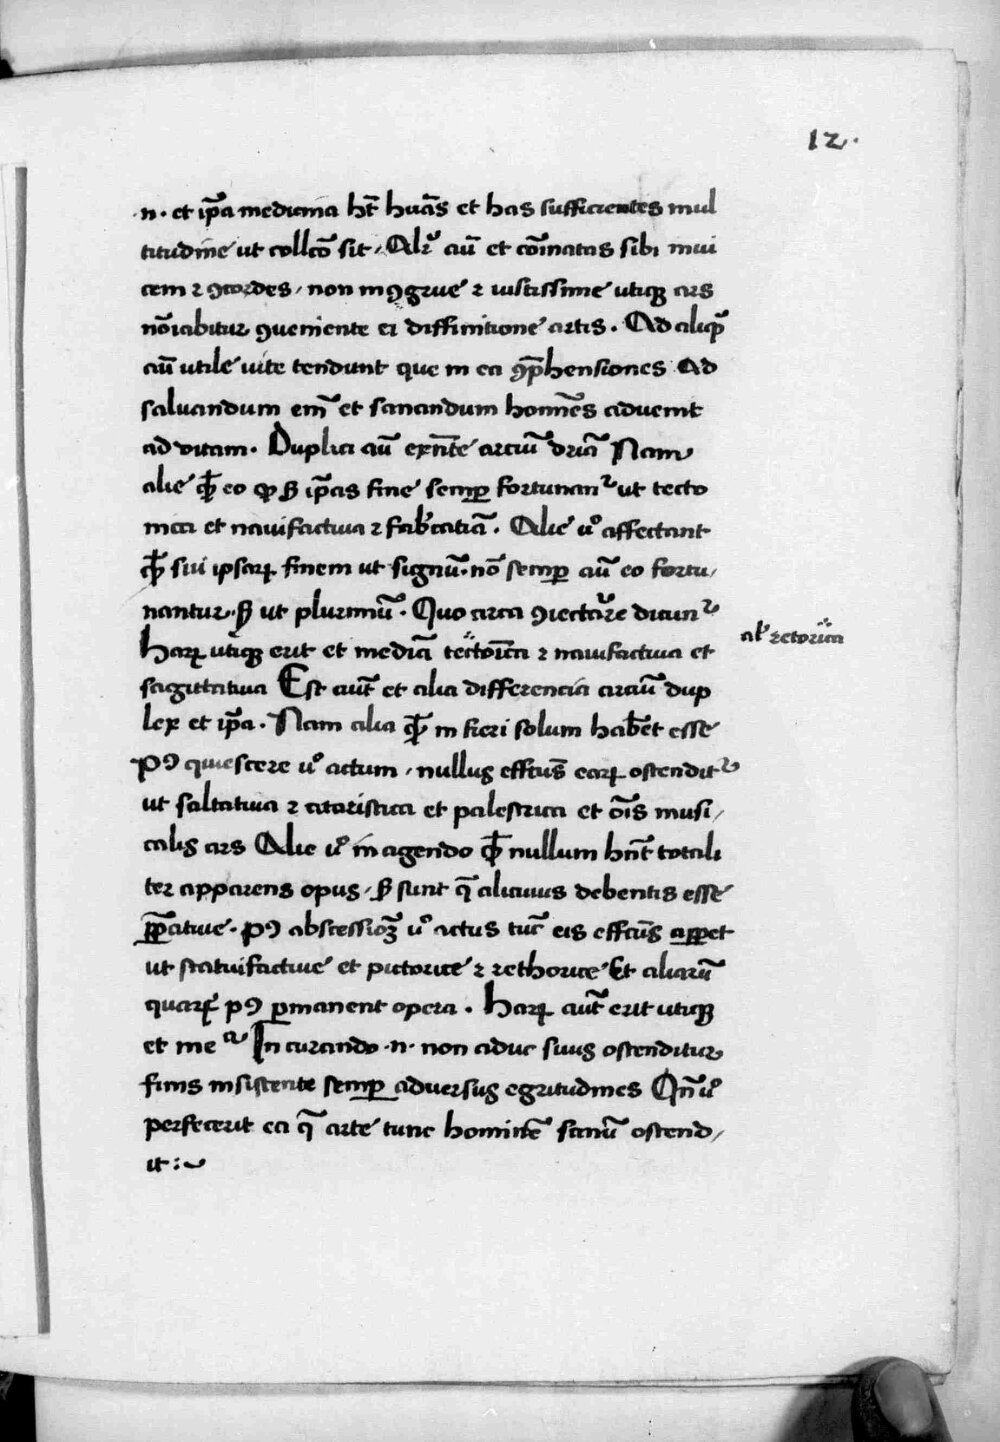 12.
.n. et ip̄a medicina hт̄ huāς et has sufficientes mul
titudine ut collc̄o sit. Alr̄ aū et cōnatas sibi inui
cem ⁊ ꝯcordes, non inꝯgrue ⁊ iustissime utiqꝫ ars
nōiabitur ꝯueniente ei diffinitione artis. Ad aliqꝫ
aū utile uite tendunt que in ea ꝯp̄hensiones Ad
saluandum em̄ et sanandum homīes aduenit
ad vitam. Duplici aū exn̄te arciū dr̄ia Nam
alie qd̄ eo qꝫ ipās fine semꝑ fortunanᷣ ut tecto
nica et nauifactiua ⁊ fabͥcatiā. Alie ūo affectant
qd̄ sui ipsaꝝ finem ut signū. nō semꝑ aū eo fortu,
nantur. sꝫ ut plurimū. Quo circa ꝯiectāre dicunᷣ
haꝝ utiqꝫ erit et mediā tectoīca ⁊ nauifactiua et
al' retorica
sagittatiua Est aut̄ et alia differencia arciū dup
lex et ip̄a. Nam alia qd̄ in fieri solum hab̄et esse
pꝰ quiescere ūo actum, nullus effcus̄ eaꝝ ostenditᷣ
ut saltatiua ⁊ citaristica et palestrica et ōis musi,
calis ars Alie ūo in agendo qd̄ nullum hn̄t totali
ter apparens opus, sꝫ sunt q̄ alicuius debentis esse
ꝑp̄atiue. pꝰ abscessioꝫ ūo actus tūc eis effcūs apꝑet
ut statuifactiue et pictorice ⁊ rethorice Et aliarū
quarꝝ pꝰ ꝑmanent opera. haꝝ aut̄ erit utiqꝫ
et meᵃ In curando .n. non aduc suus ostenditur
finis insistente semꝑ aduersus egritudines Qn̄ ūo
perfecerit ea q̄ arte tunc hominē sanū ostend,
it:~